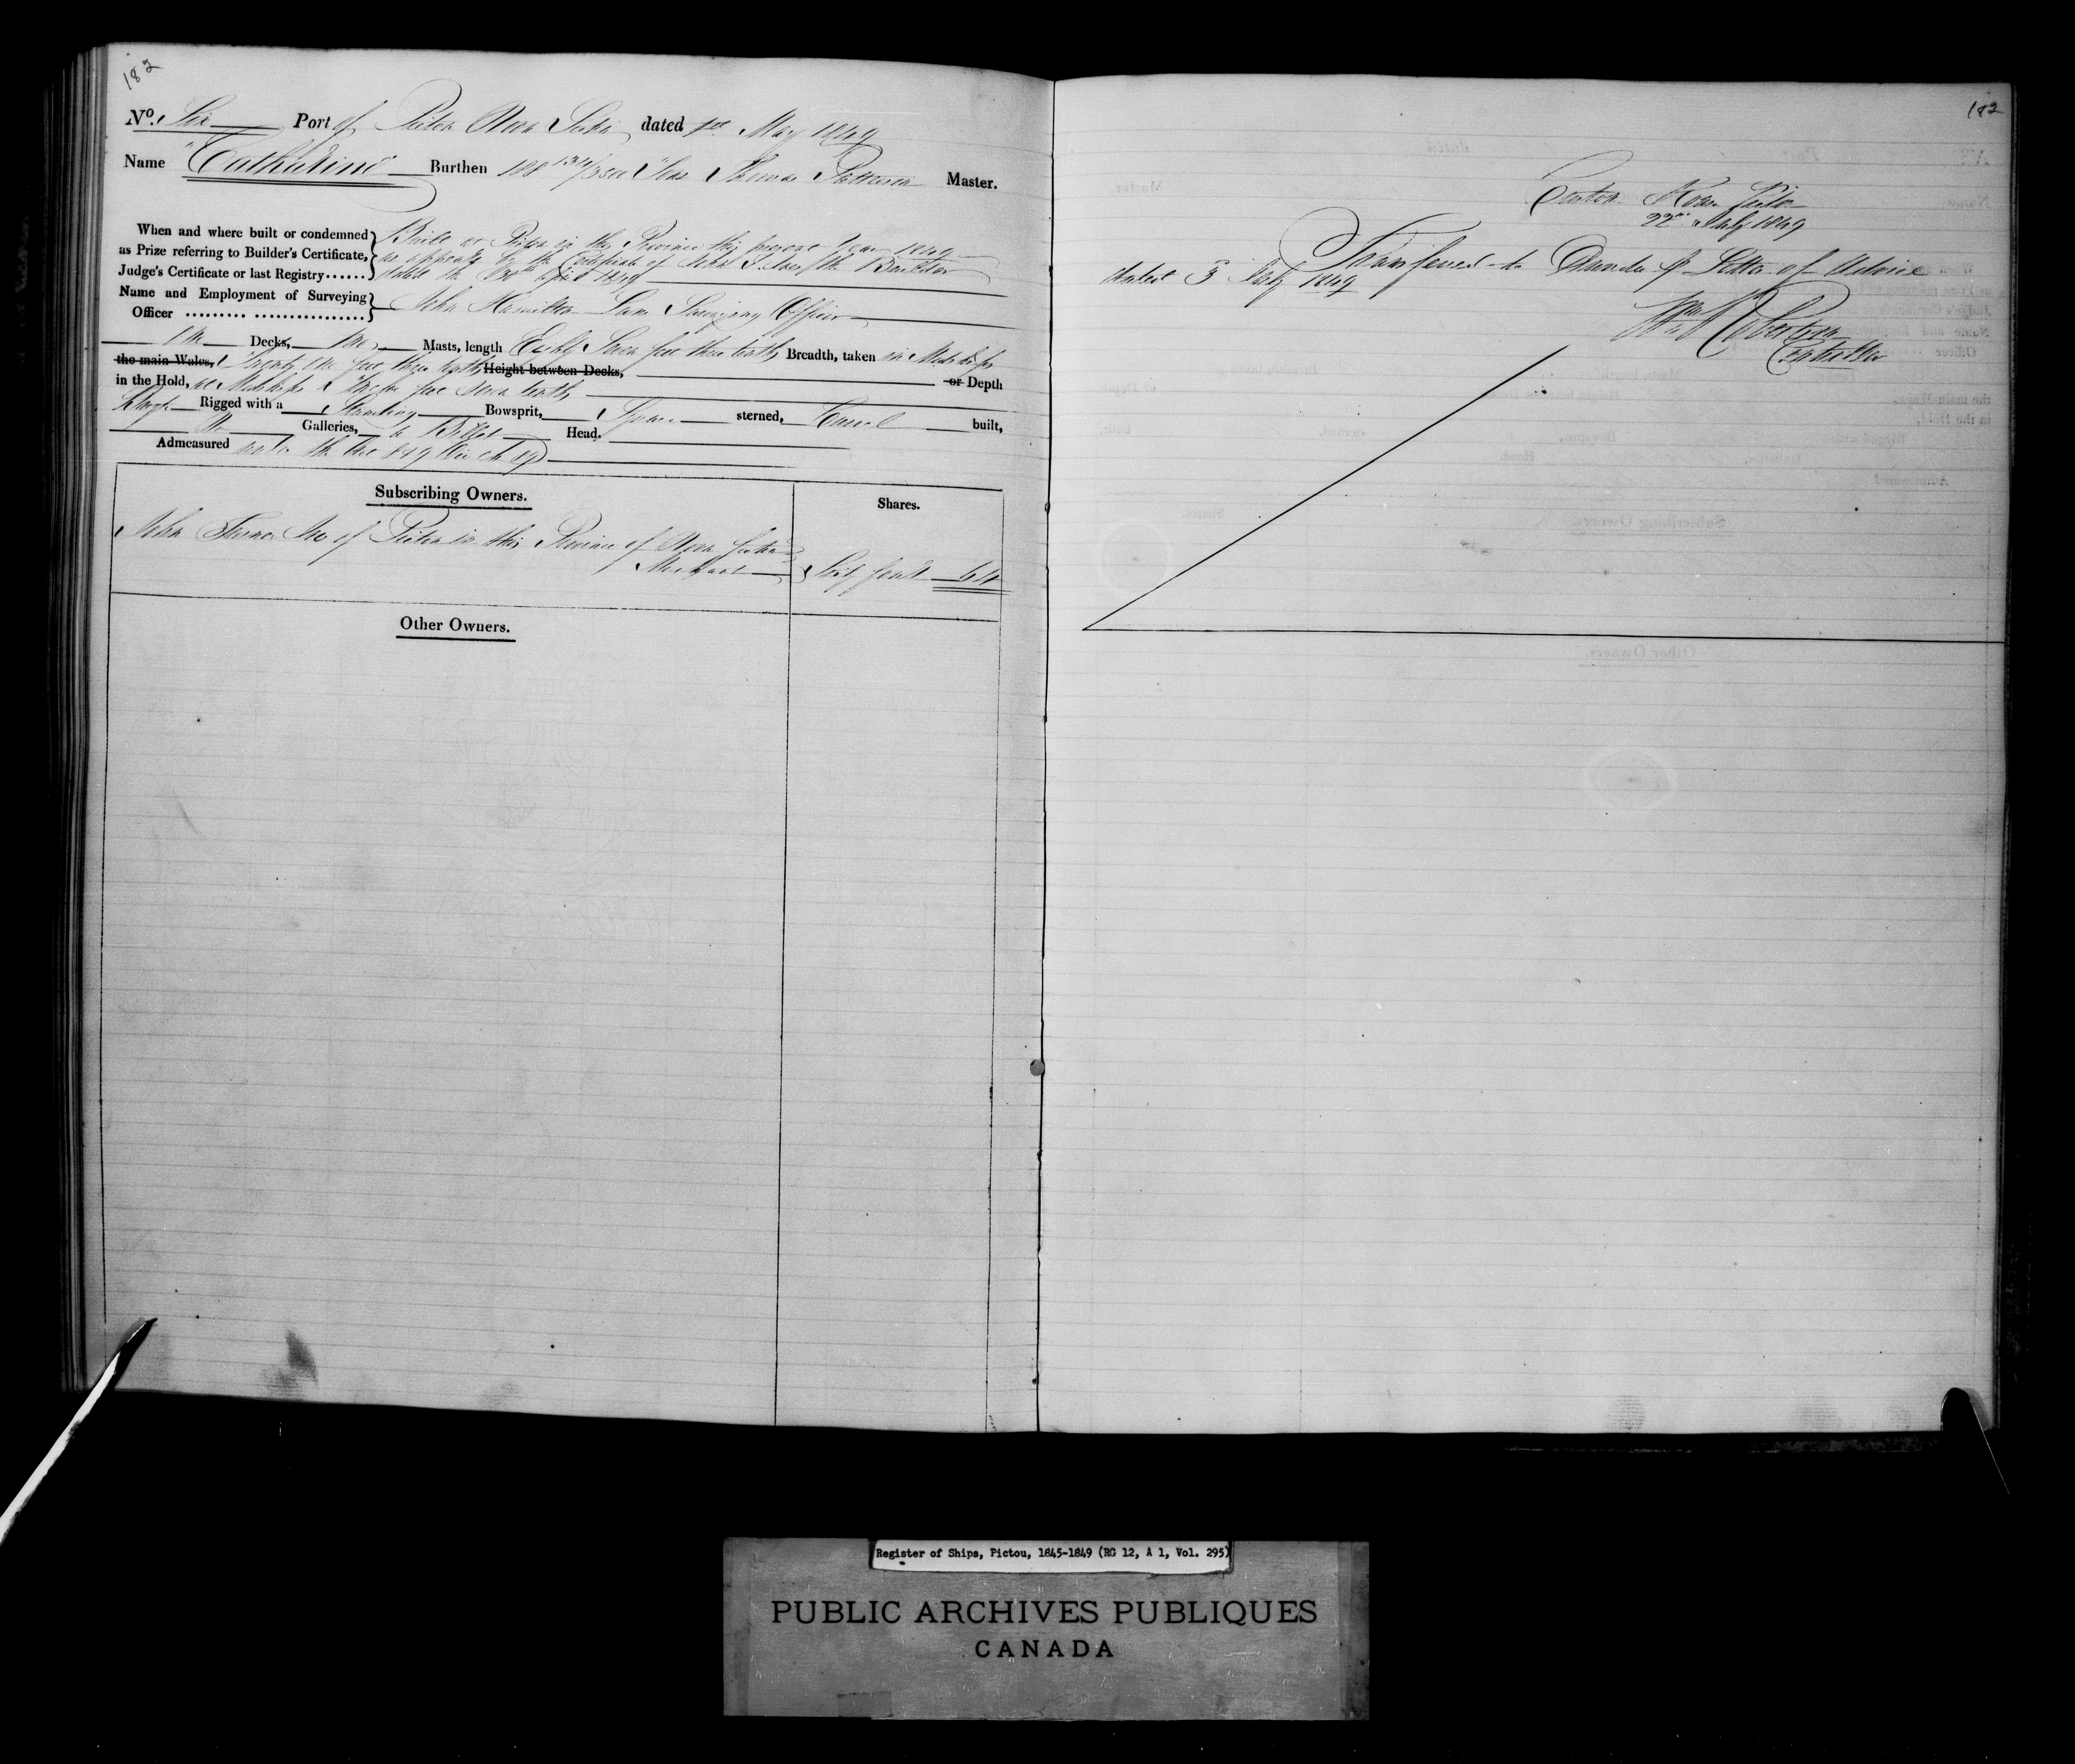 182
No. Six Port of Pictou Nova Scotia dated 1st May 1849
Name "Catherine" Burthen 108 Tons Thomas Patterson Master.
When and where built or condemned
as Prize referring to Builder's Certificate,
Judge's Certificate or last Registry......
Built at Pictou in this Province this present Year 1849
as appears by the Certificate of John the Builder
dated the April 1849
Name and Employment of Surveying
Officer ......... ................
John Hamilton Surveying Officer
One Decks, One Masts, length Eighty Seven feet three tenths Breadth, taken in Midships
the main Wales, Twenty one feet three tenths Height between Decks, or Depth
in the Hold, at Midships feet Seven tenths
Rigged with a Standing Bowsprit, Square sterned, Carvel built,
No Galleries, a Billet Head.
Admeasured
Subscribing Owners.
Shares.
John of Pictou in this Province of Nova Scotia
Merchant Sixty four 64
Other Owners.
182
Custom House Pictou
22nd July 1849
Transferred to Dundee p Letter of Advice
dated 3 July 1849
Wm Robertson
Controller
Register of Ships, Pictou, 1845-1849 (RG 12, A 1, Vol. 295)
PUBLIC ARCHIVES PUBLIQUES
CANADA